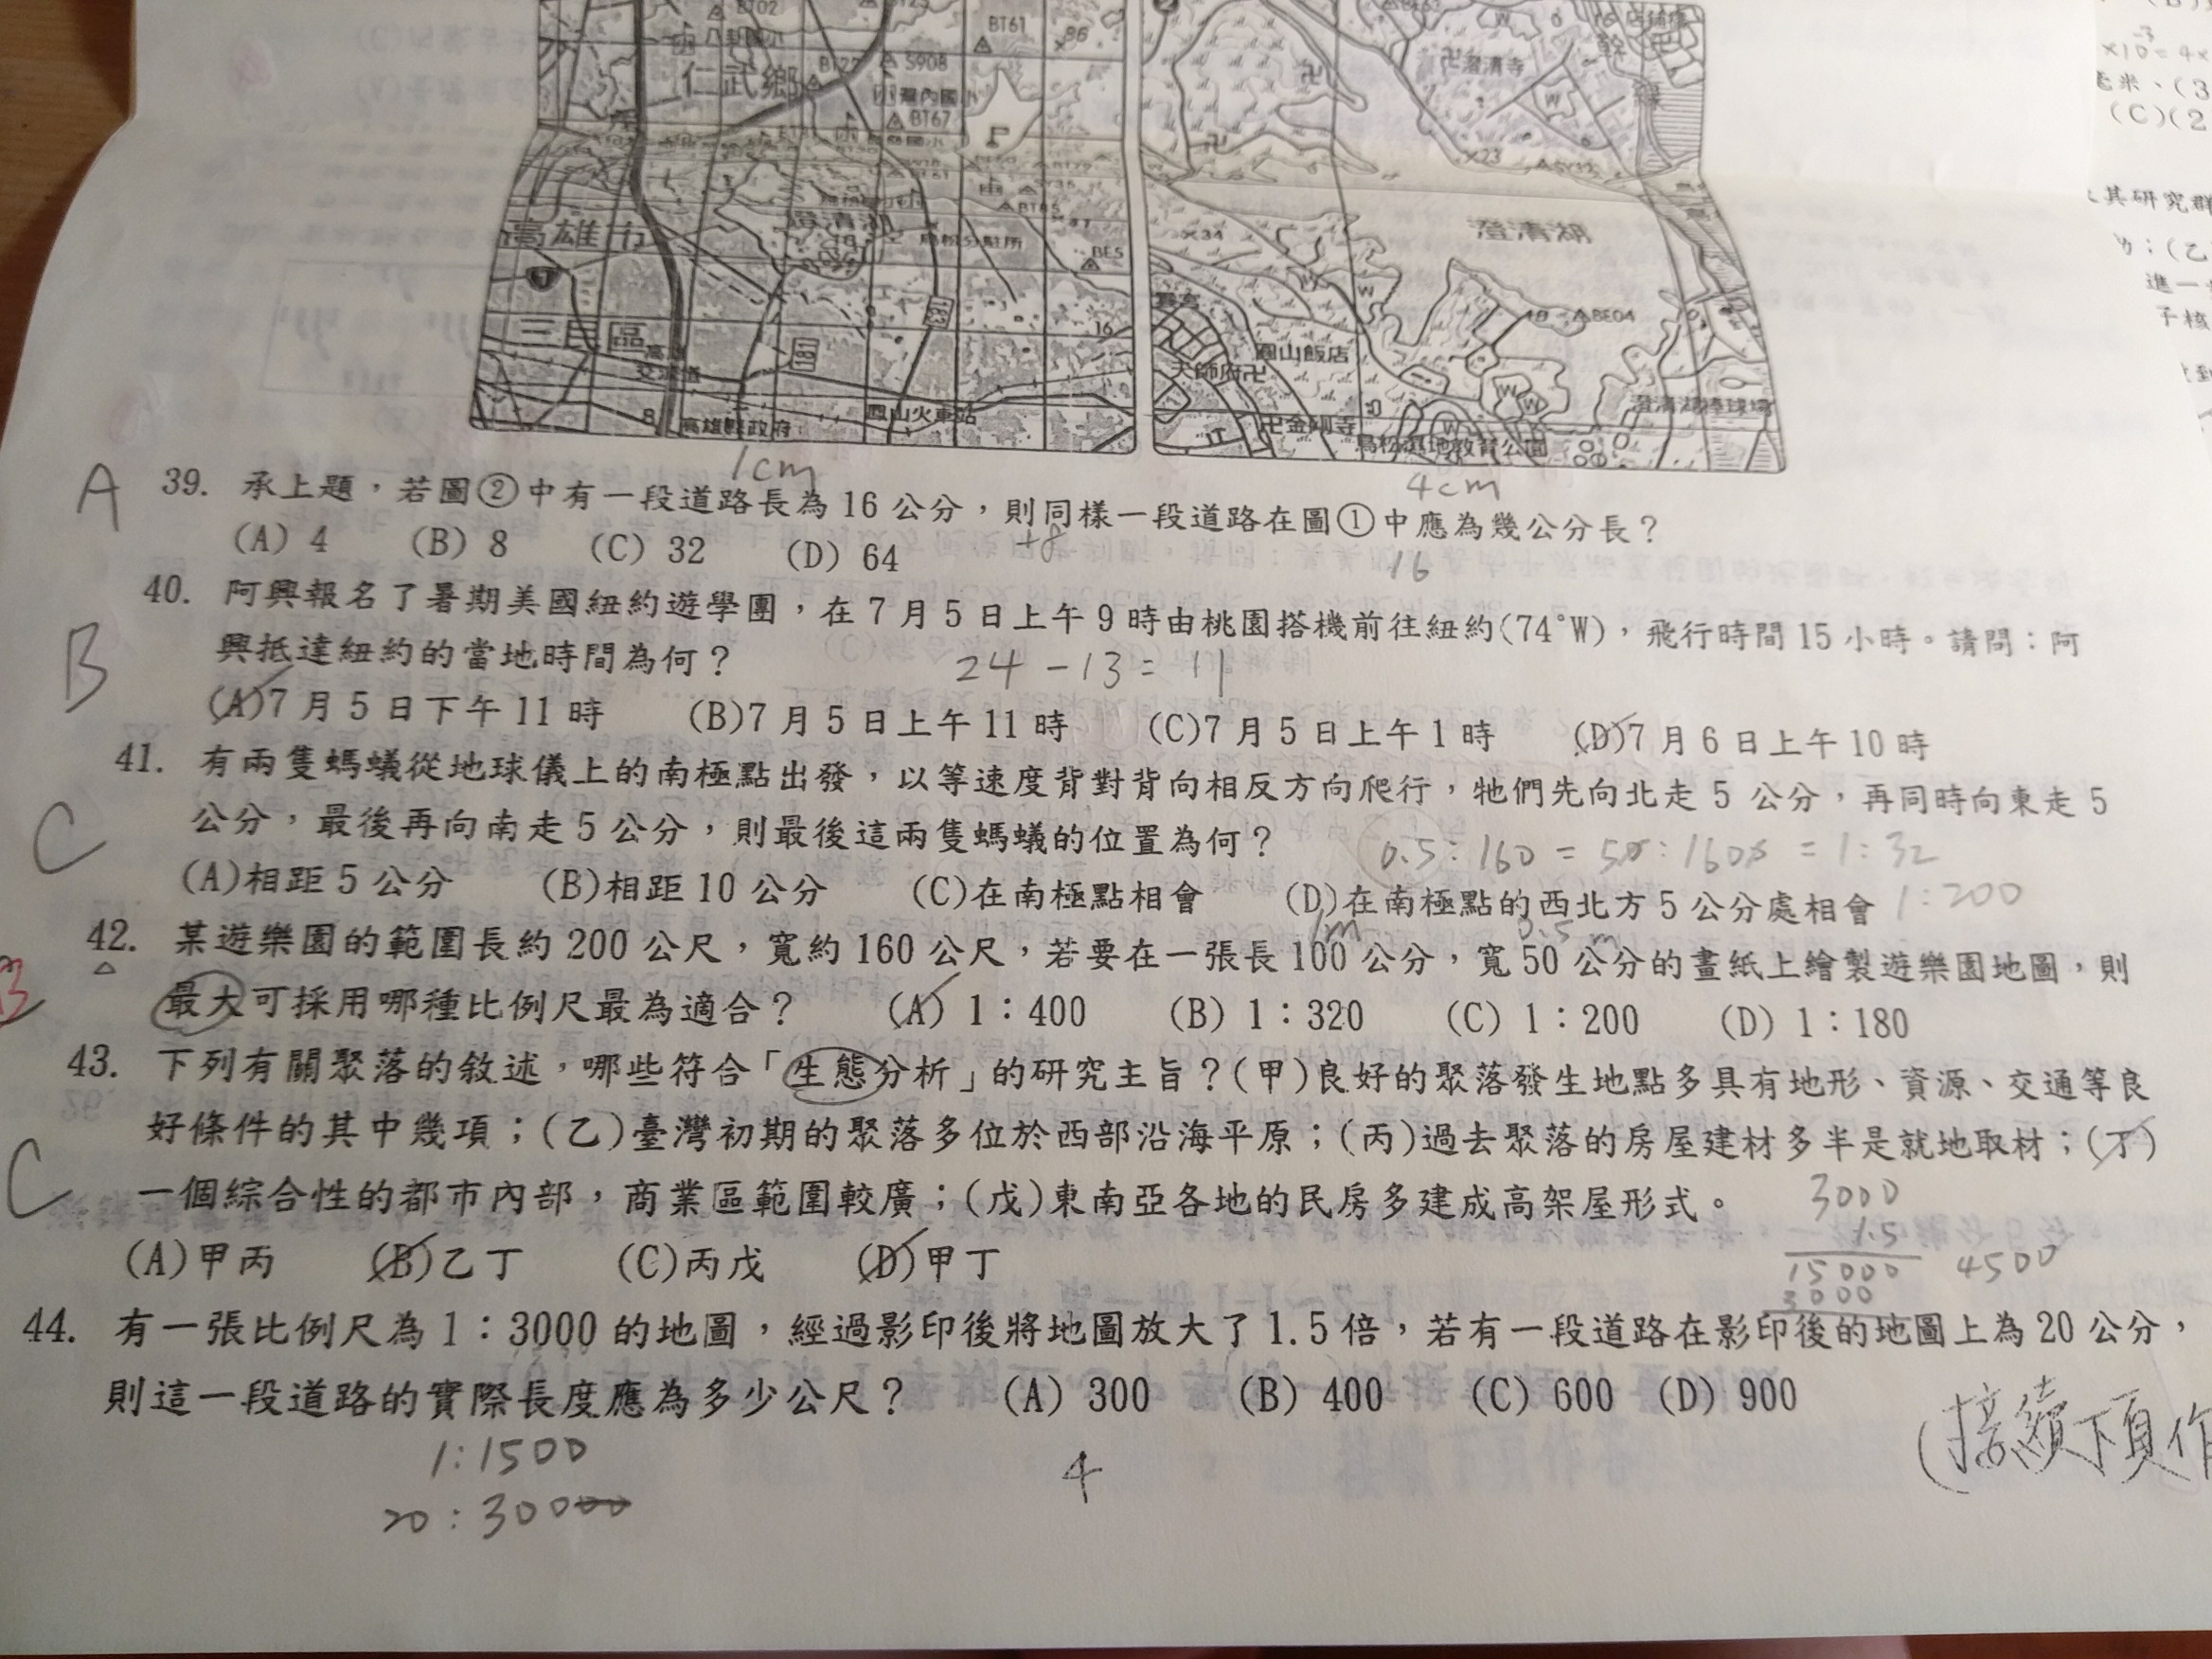 BT02
BT61
八卦國小
86
仁武鄉
BT22
S908
灣內國小
BT67
澄清寺
幹
線
X23
高雄市
澄清湖
鳥松分駐所
BE5
X34
澄清湖
BE04
三民區
183
16
圓山飯店
天師府卍
181
8
高雄縣政府
鳳山火車站
卍金剛寺
鳥松濕地教育公園
澄清湖棒球場
1cm
4cm
A
39. 承上題，若圖②中有一段道路長為 16 公分，則同樣一段道路在圖①中應為幾公分長？
(A) 4 (B) 8 (C) 32 (D) 64
16
40. 阿興報名了暑期美國紐約遊學團，在 7 月 5 日上午 9 時由桃園搭機前往紐約(74°W)，飛行時間 15 小時。請問：阿
興抵達紐約的當地時間為何？
24 - 13 = 11
B
(A)7 月 5 日下午 11 時 (B)7 月 5 日上午 11 時 (C)7 月 5 日上午 1 時 (D)7 月 6 日上午 10 時
41. 有兩隻螞蟻從地球儀上的南極點出發，以等速度背對背向相反方向爬行，牠們先向北走 5 公分，再同時向東走 5
公分，最後再向南走 5 公分，則最後這兩隻螞蟻的位置為何？
C
0.5 : 160 = 50 : 1600 = 1 : 32
(A)相距 5 公分 (B)相距 10 公分 (C)在南極點相會 (D)在南極點的西北方 5 公分處相會
1 : 200
1m
0.5 m
42. 某遊樂園的範圍長約 200 公尺，寬約 160 公尺，若要在一張長 100 公分，寬 50 公分的畫紙上繪製遊樂園地圖，則
B
最大可採用哪種比例尺最為適合？ (A) 1：400 (B) 1：320 (C) 1：200 (D) 1：180
43. 下列有關聚落的敘述，哪些符合「生態分析」的研究主旨？(甲)良好的聚落發生地點多具有地形、資源、交通等良
好條件的其中幾項；(乙)臺灣初期的聚落多位於西部沿海平原；(丙)過去聚落的房屋建材多半是就地取材；(丁)
C
一個綜合性的都市內部，商業區範圍較廣；(戊)東南亞各地的民房多建成高架屋形式。
3000
1.5
15000
3000
4500
(A)甲丙 (B)乙丁 (C)丙戊 (D)甲丁
44. 有一張比例尺為 1：3000 的地圖，經過影印後將地圖放大了 1.5 倍，若有一段道路在影印後的地圖上為 20 公分，
則這一段道路的實際長度應為多少公尺？ (A) 300 (B) 400 (C) 600 (D) 900
1:1500
20 : 30000
4
(接續下頁作